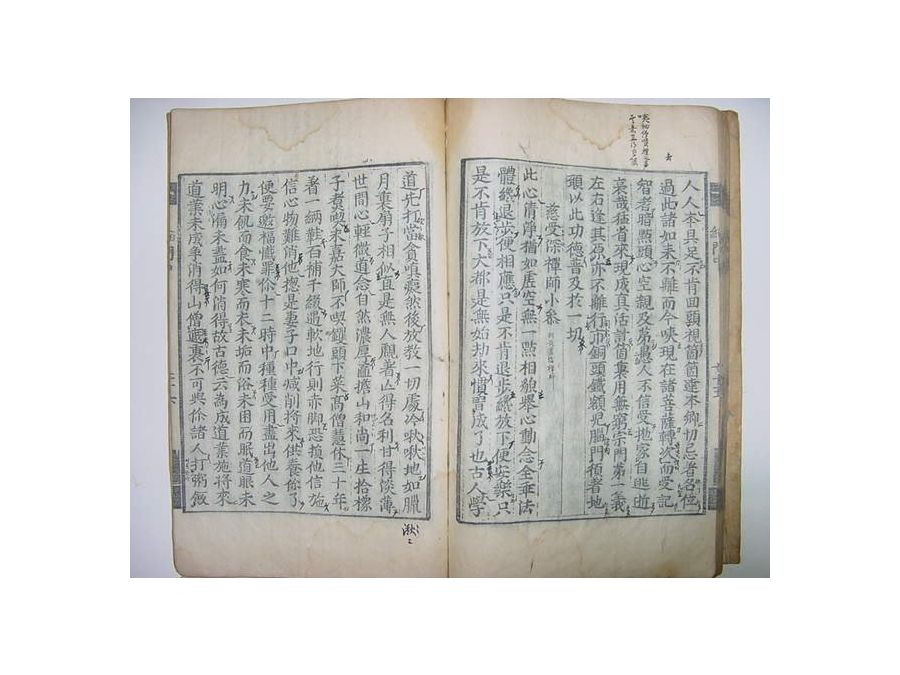 人人本具足不肯回頭視箇達本鄉切忌着名位
過此諸如來不離而今現在諸菩薩轉次而受記
智者暗點頭心空親及第愚人不信受地家自逃逝
哀哉猛省來現成眞活計箇用無窮宗門第一義
左右逢其原亦不離行市銅頭鐵額兒腦門須着地
願以此功德普及於一切
慈受深禪師小參
此心清淨猶如虛空無一點相貌擧心動念全乖法
體纔退步便相應只是不肯退步纔放下便安樂只
是不肯放下大都是無始劫來慣習成了也古人學
道先打當貪嗔癡然後放教一切處冷啾啾地如臘
月裏扇子相似直是無人覰著亾得名利甘得淡薄
世間心輕微道念自然濃厚匾擔山和尚一生拾橡
子煑喫永嘉大師不喫钁頭下菜高僧慧休三十年
著一緉鞋補千綴遇軟地行則赤脚恐損他信施
信心物難消他揔是妻子口中減削將來供養你了
便要邀福懺罪伱十二時中種種受用盡出他人之
力未飢而食未寒而衣未垢而浴未困而眠道眼未
明心漏未盡如何消得故古德云爲成道業施將來
道業未成爭消得山僧遮裏不可與你諸人打粥飯